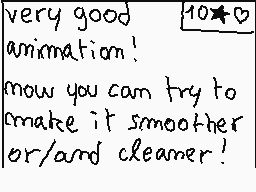 very good 10★♡
animation!
now you can try to
make it smoother
or/and cleaner!